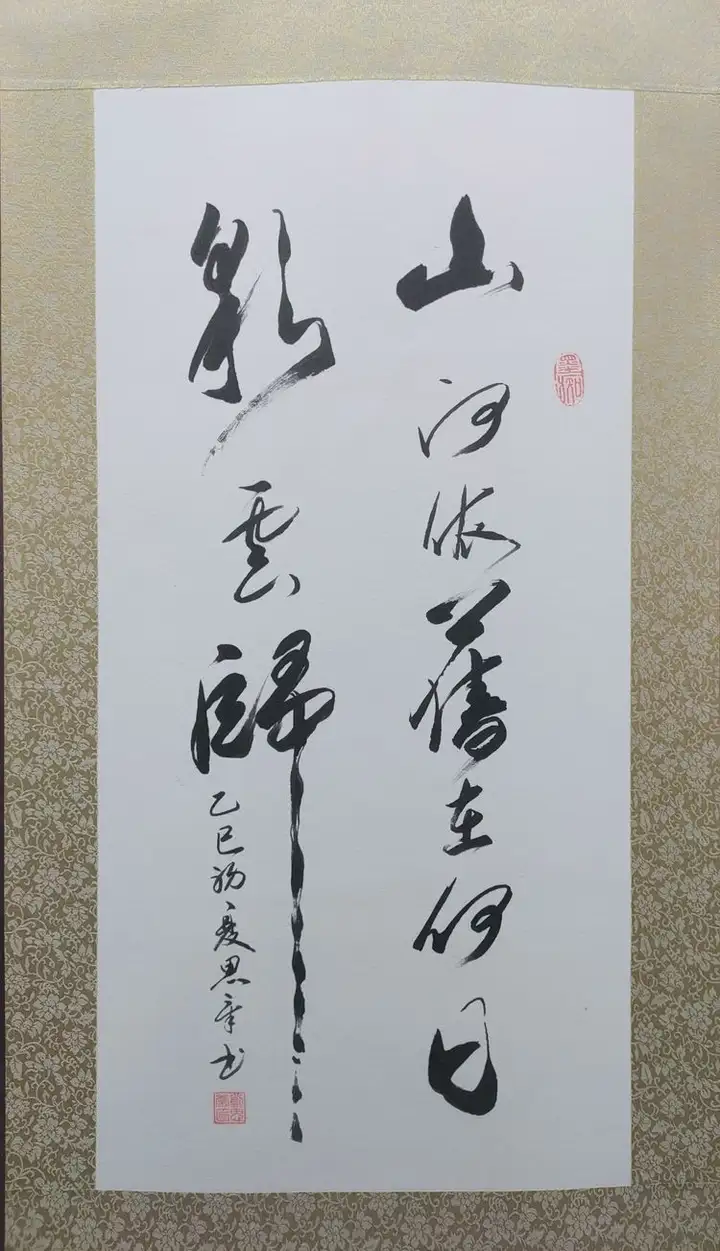 山河依舊在何日
彩雲歸
乙巳初夏思齊书